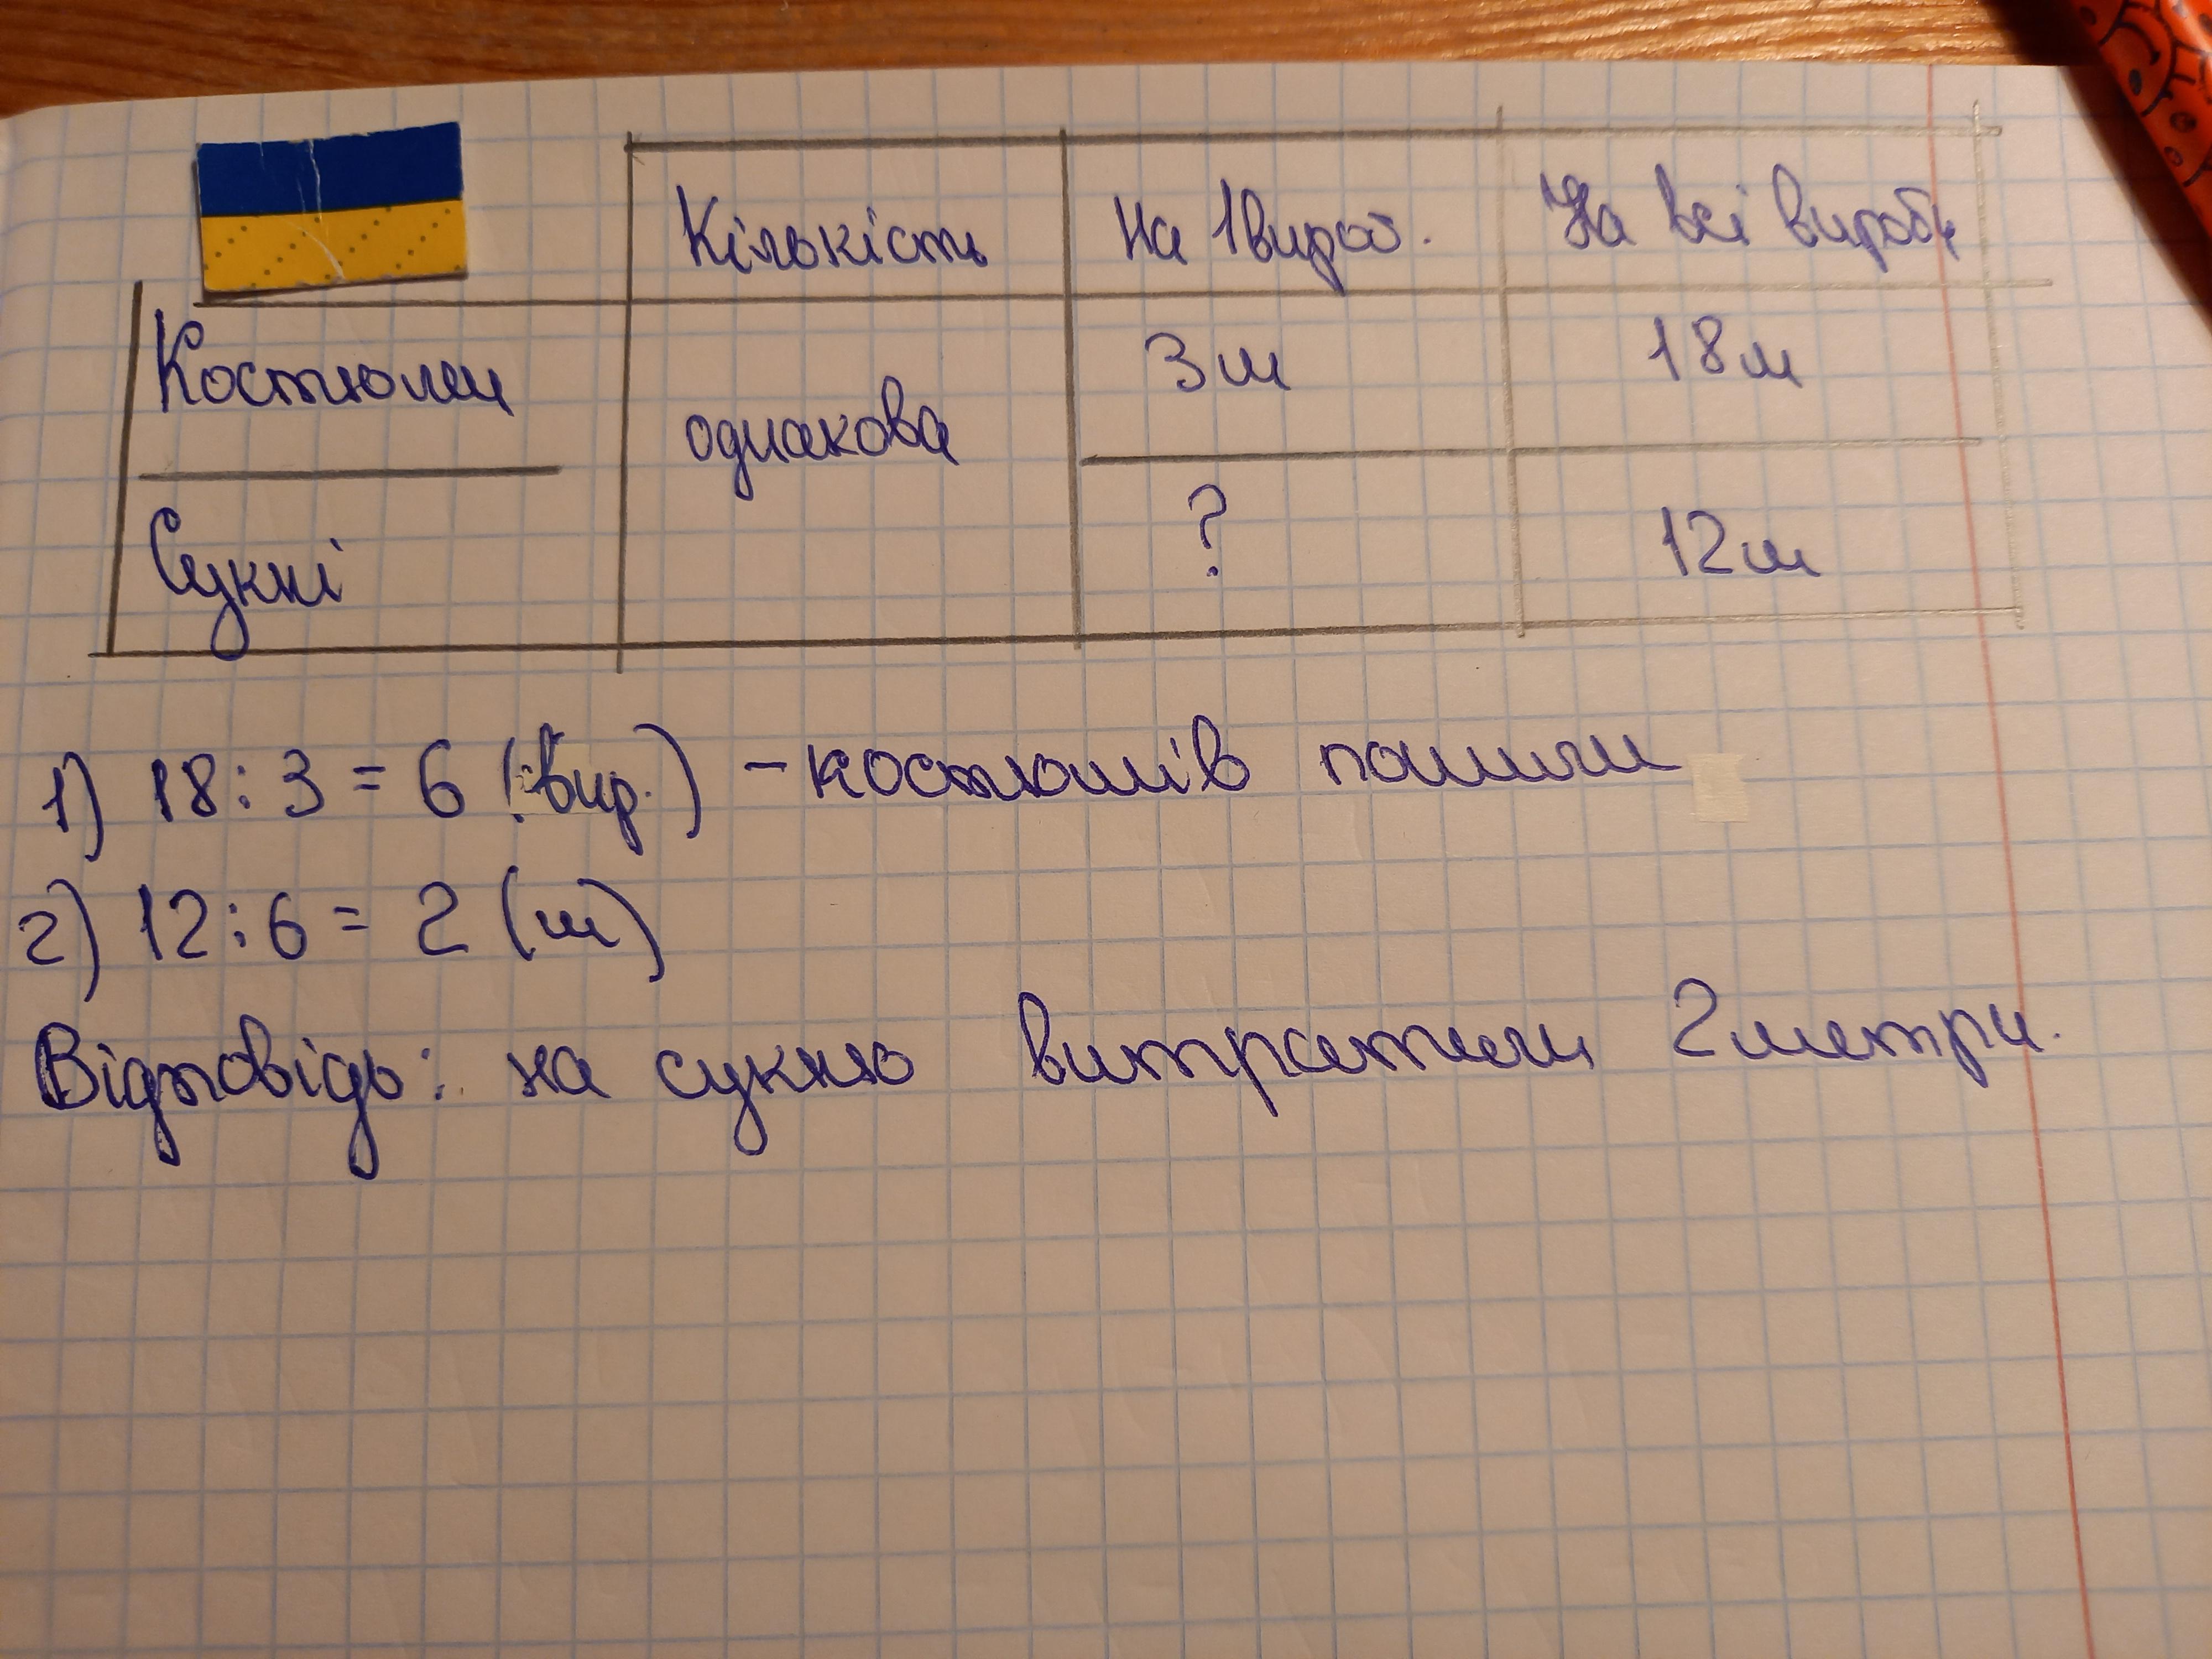 Кількість На 1 вироб. На всі вироби
Костюми однакова 3м 18м
Сукні ? 12м
1) 18:3=6 (вир.) - костюмів пошили
2) 12:6=2 (м)
Відповідь: на сукню витратили 2 метри.